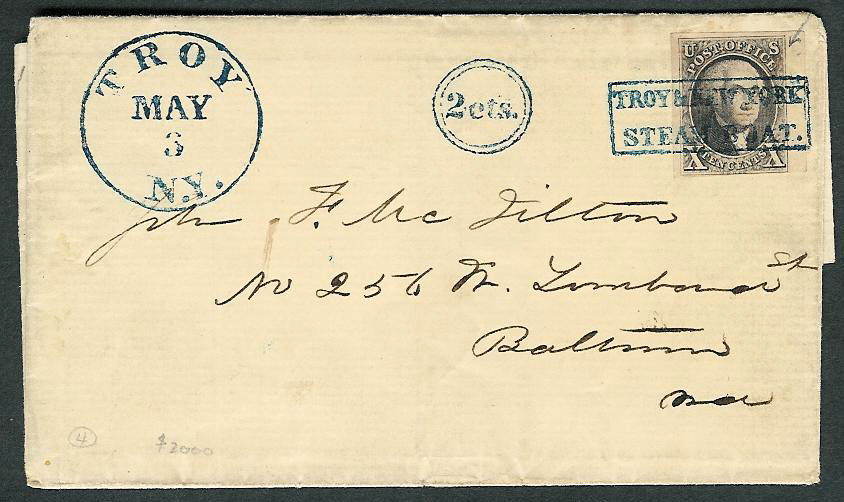 TROY
MAY
3
N.Y.
2cts.
U S
POST OFFICE
TROY & NEW YORK
STEAM BOAT.
X TEN CENTS X
John F. McJilton
No 256 W. Lombard St
Baltimore
Md
4
$2000